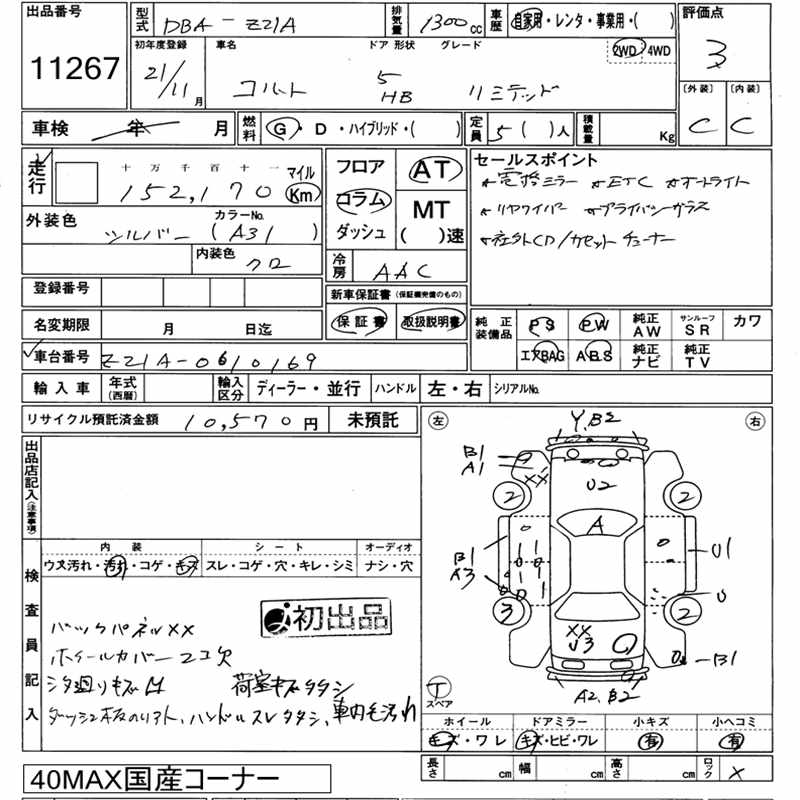 出品番号 11267
型式 DBA-Z21A 排気量 1300cc 車歴 自家用・レンタ・事業用・( )
評価点 3
初年度登録 21/11月 車名 コルト ドア 形状 5 HB グレード リミテッド 2WD 4WD
〔外装〕 C 〔内装〕 C
車検 年 月 燃料 G・D・ハイブリッド・( ) 定員 5( )人 積載量 Kg
走行 十万千百十一 152,170 マイル Km
フロア コラム ダッシュ AT MT ( )速
セールスポイント
電格ミラー ETC オートライト
リヤワイパー プライバシーガラス
社外CD/カセットチューナー
外装色 シルバー カラーNo. (A31)
内装色 クロ
冷房 AAC
登録番号
新車保証書(保証継続価のもの)
保証書 取扱説明書
名変期限 月 日迄
純正装備品 PS PW 純正AW サンルーフSR カワ
エアBAG ABS 純正ナビ 純正TV
車台番号 Z21A-0610169
輸入車 年式(西暦) 輸入区分 ディーラー・並行 ハンドル 左・右 シリアルNo.
リサイクル預託済金額 10,570円 未預託
出品店記入(注意事項)
左 右
Y,B2
B1
A1
XX
U2
2 2
A
B1
A3
U1
U
3 2
XX
U3
B1
A2,B2
T スペア
検査員記入
内装 シート オーディオ
ウス汚れ・汚れ・コゲ・キズ スレ・コゲ・穴・キレ・シミ ナシ・穴
初出品
バックパネルXX
ホイールカバー2コ欠
シタ廻りキズ凹 荷室キズタタシ
ダッシュ板のリフト、ハンドルスレタタシ、車内毛汚れ
ホイール ドアミラー 小キズ 小ヘコミ
キズ・ワレ キズ・ヒビ・ワレ 有 有
長さ cm 幅 cm 高さ cm ロック X
40MAX国産コーナー